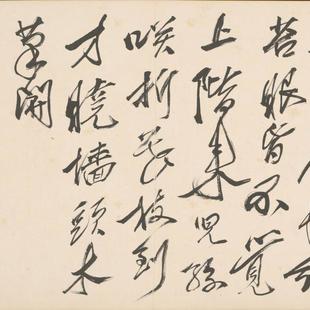 苔眼皆不覺
上階來兒孫
咲折花枝到
才曉墻頭木
筆開